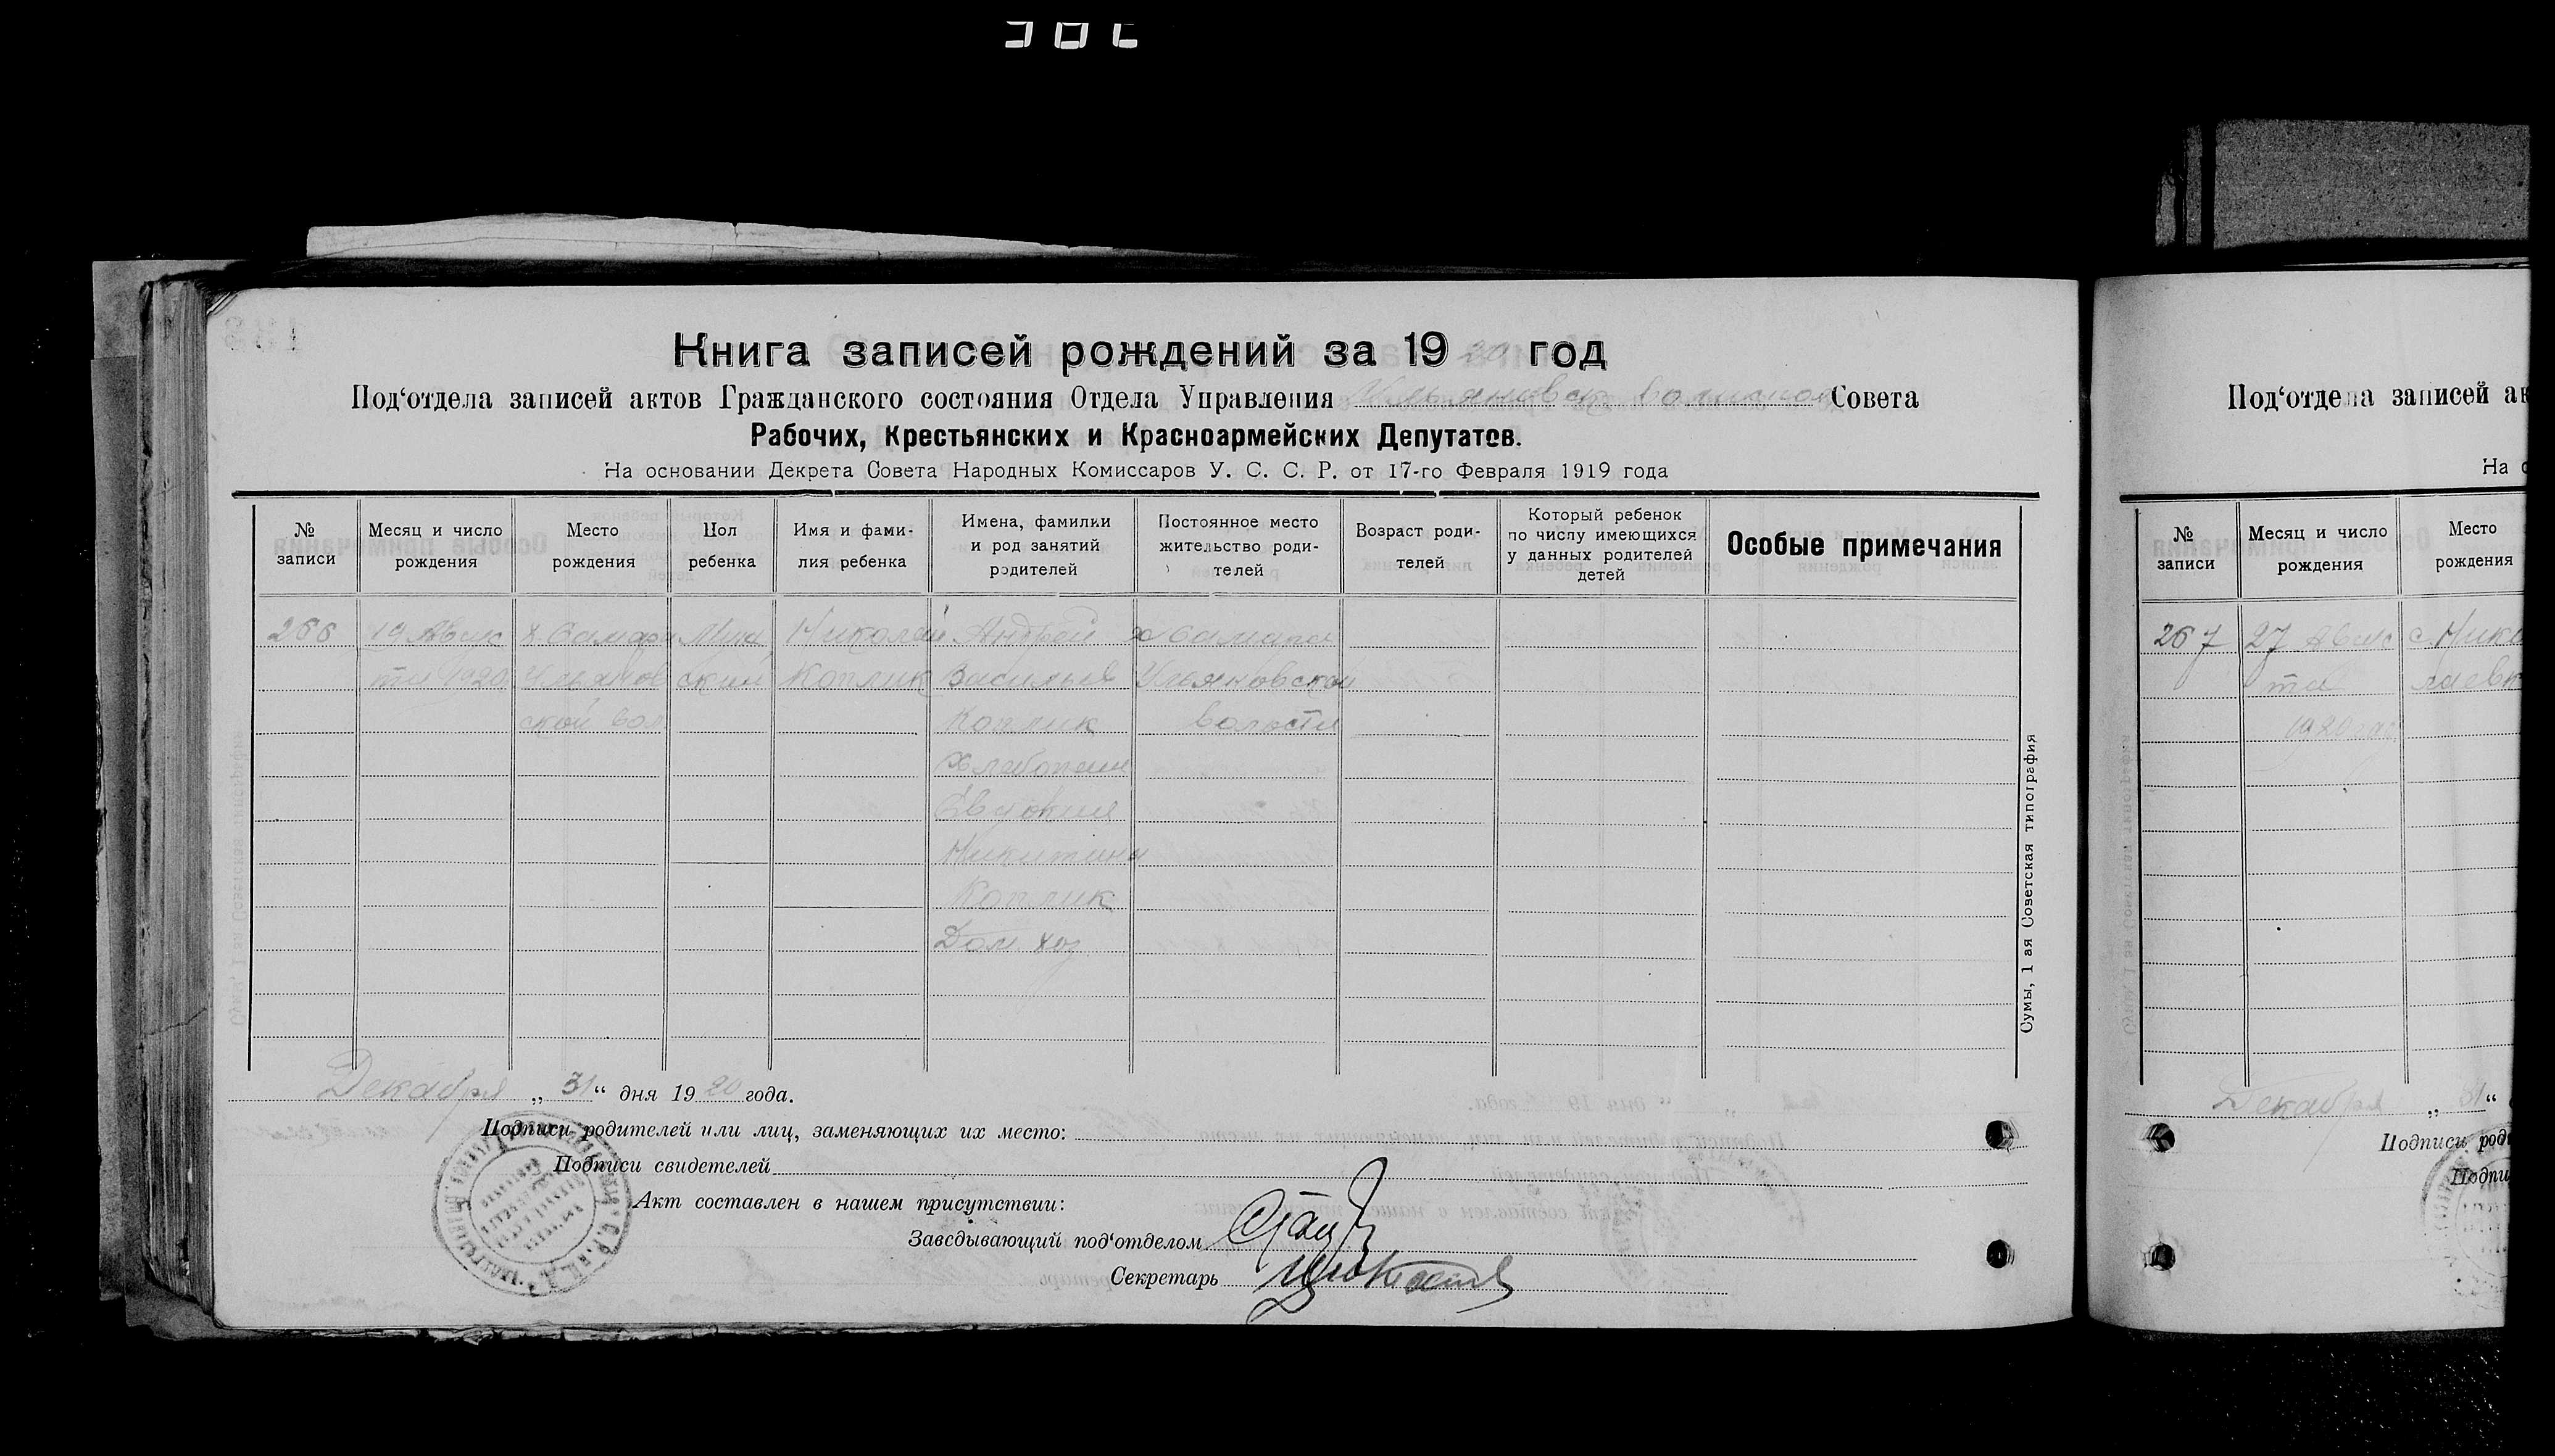 Книга записей рождений за 1920 год
Под‘отдела записей актов Гражданского состояния Отдела Управления Ульяновск. Волисной Совета
Рабочих, Крестьянских и Красноармейских Депутатов.
На основании Декрета Совета Народных Комиссаров У. С. С. Р. от 17-го Февраля 1919 года
№ записи
Месяц и число рождения
Место рождения
Пол ребенка
Имя и фами-
лия ребенка
Имена, фамилии
и род занятий
родителей
Постоянное место
жительство роди-
телей
Возраст роди-
телей
Который ребенок
по числу имеющихся
у данных родителей
детей
Особые примечания
266
19 Авгус
та 1920
Ульянов
ской вол
Муж
ский
Николай
Коплик
Андрей
Васильев
Коплик
Хлебопаш
Евдокия
Никитина
Коплик
Дом. хоз
Ульяновской
волости
Сумы, 1 ая Советская типография
Декабря „31“ дня 1920 года.
Подписи родителей или лиц, заменяющих их место:
Подписи свидетелей
Акт составлен в нашем присутствии:
Заведывающий под‘отделом
Секретарь
Под‘отдела записей ак
На о
№ записи
Месяц и число рождения
Место рождения
267
27 Авгус
та
1920 год
с. Нико
лаевк
Декабря „31“
Подписи род
Подпи